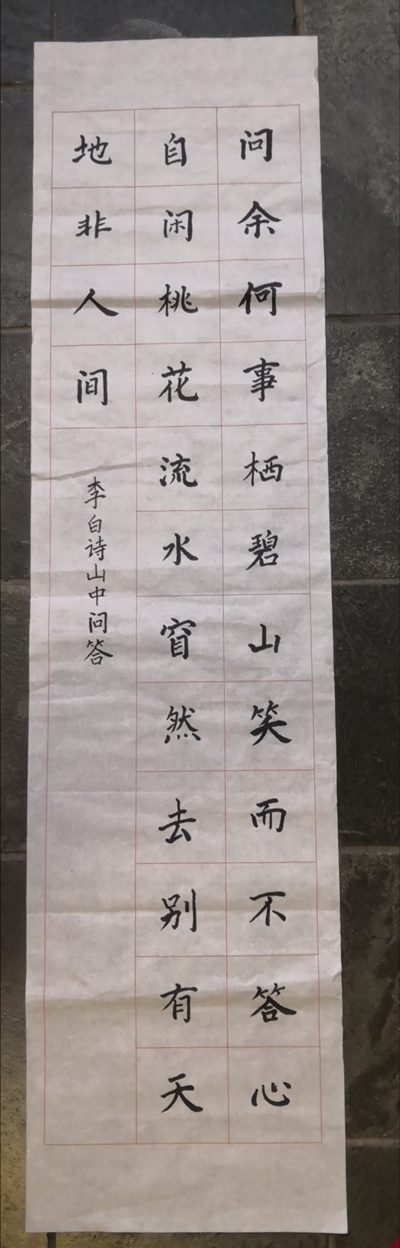 问余何事栖碧山笑而不答心
自闲桃花流水窅然去别有天
地非人间
李白诗山中问答